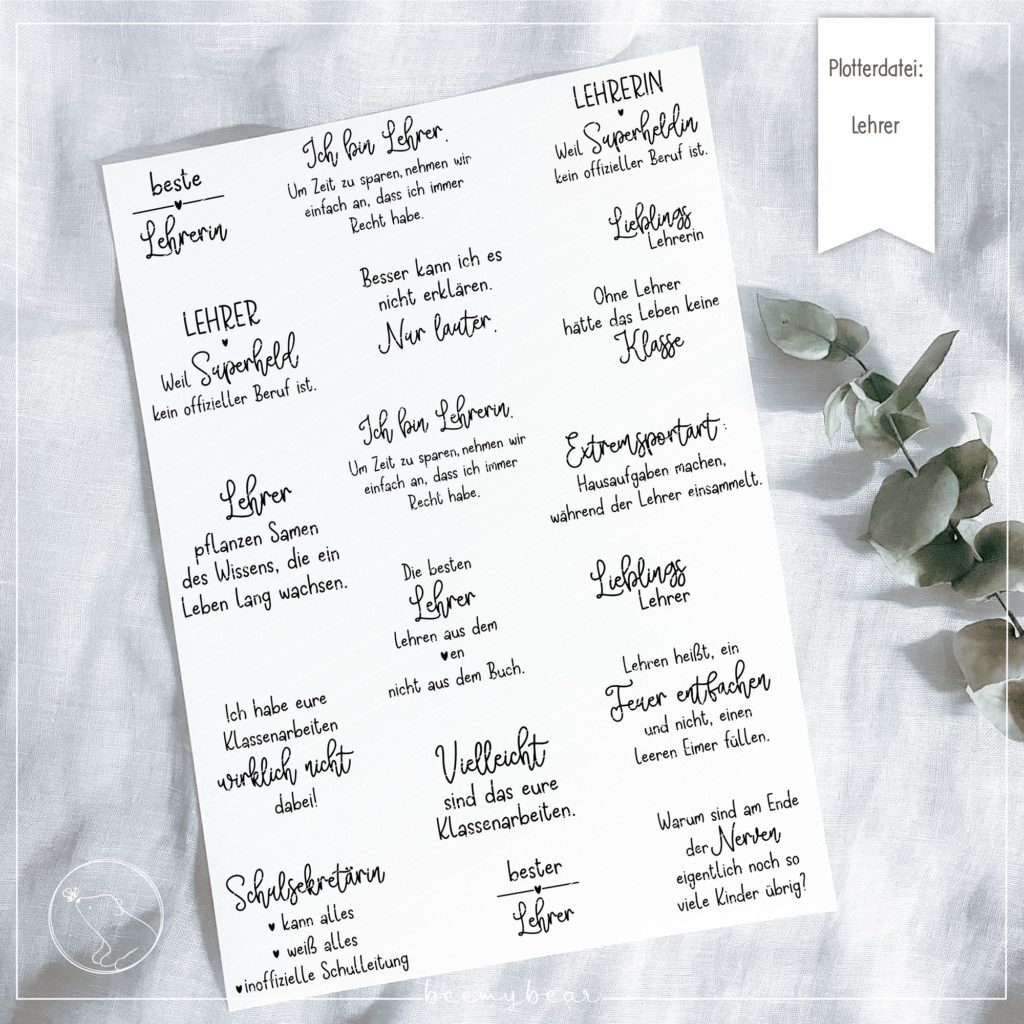 Plotterdatei:
Lehrer
beste
Lehrerin
Ich bin Lehrer.
Um Zeit zu sparen, nehmen wir
einfach an, dass ich immer
Recht habe.
LEHRERIN
Weil Superheldin
kein offizieller Beruf ist.
Lieblings
Lehrerin
LEHRER
Weil Superheld
kein offizieller Beruf ist.
Besser kann ich es
nicht erklären.
Nur lauter.
Ohne Lehrer
hätte das Leben keine
Klasse
Ich bin Lehrerin.
Um Zeit zu sparen, nehmen wir
einfach an, dass ich immer
Recht habe.
Extremsportart:
Hausaufgaben machen,
während der Lehrer einsammelt.
Lehrer
pflanzen Samen
des Wissens, die ein
Leben lang wachsen.
Die besten
Lehrer
lehren aus dem
♥en
nicht aus dem Buch.
Lieblings
Lehrer
Lehren heißt, ein
Feuer entfachen
und nicht, einen
leeren Eimer füllen.
Ich habe eure
Klassenarbeiten
wirklich nicht
dabei!
Vielleicht
sind das eure
Klassenarbeiten.
Warum sind am Ende
der Nerven
eigentlich noch so
viele Kinder übrig?
Schulsekretärin
♥ kann alles
♥ weiß alles
♥inoffizielle Schulleitung
bester
Lehrer
beemybear